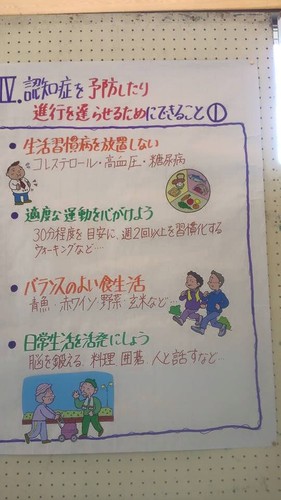 Ⅳ.認知症を予防したり
進行を遅らせるためにできること①
●生活習慣病を放置しない
コレステロール・高血圧・糖尿病
●適度な運動を心がけよう
30分程度を目安に、週2回以上を習慣化する
ウォーキングなど…
●バランスのよい食生活
青魚 赤ワイン 野菜 玄米など…
●日常生活を活発にしよう
脳を鍛える 料理 囲碁 人と話すなど…